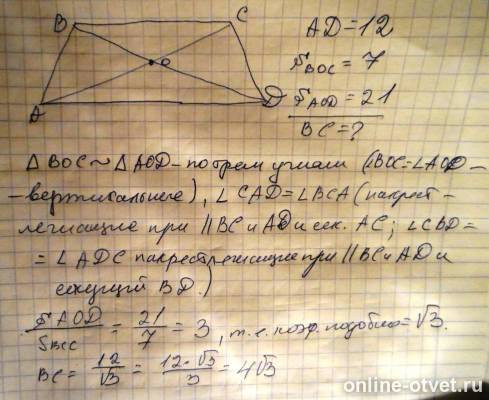 B
C
O
A
D
AD = 12
S BOC = 7
S AOD = 21
BC = ?
Δ BOC ~ Δ AOD - по трем углам (∠BOC = ∠AOD -
- вертикальные), ∠CAD = ∠BCA (накрест-
лежащие при || BC и AD и сек. AC; ∠CBD =
= ∠ADC накрестлежащие при || BC и AD и
секущей BD.)
S AOD / S BOC = 21/7 = 3, т.е. коэф. подобия = √3.
BC = 12/√3 = 12·√3/3 = 4√3
online-otvet.ru